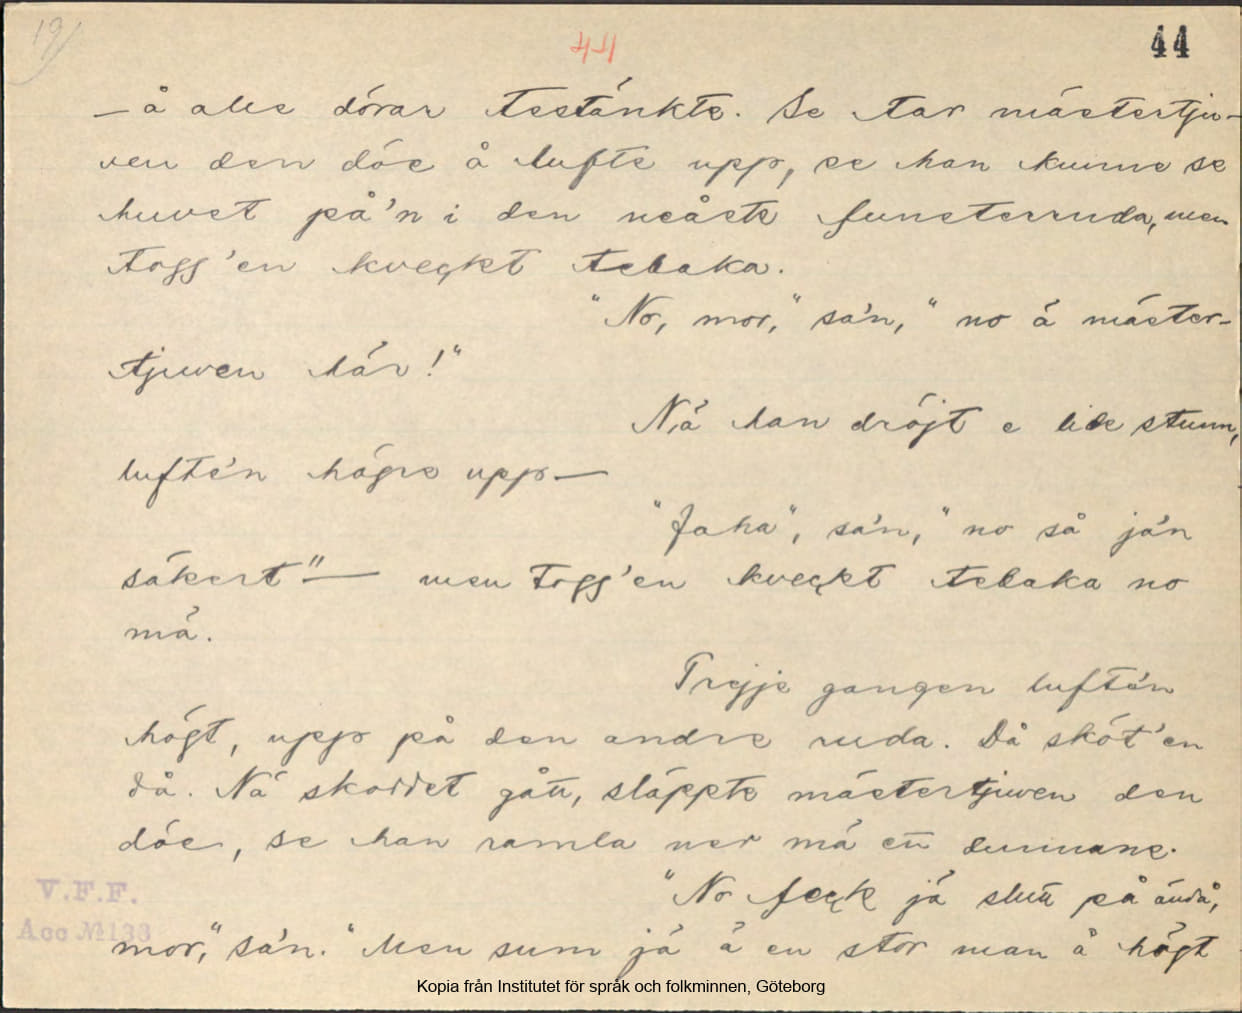 19/
44
44
— å alle dörar testänkte. Se tar mästertju-
ven den döe å lufte upp, se han kunne se
huvet på'n i den neåste funsterruda, men
togg'en kveckt tebaka.
"No, mor," sa'n, "no ä mäster-
tjuven här!"
Nä han dröjt e lide stunn,
lufte'n högre upp —
"Jaha", sa'n, "no så ja'n
säkert" — men togg'en kveckt tebaka no
mä.
Trejje gangen lufte'n
högt, upp på den andre ruda. Då sköt'en
då. Nä skoddet gått, släppte mästertjuven den
döe, se han ramla ner mä en dunnane.
"No feck jä slut på ändå,
mor," sa'n. "Men sum jä ä en stor man å högt
V.F.F.
Acc № 133
Kopia från Institutet för språk och folkminnen, Göteborg